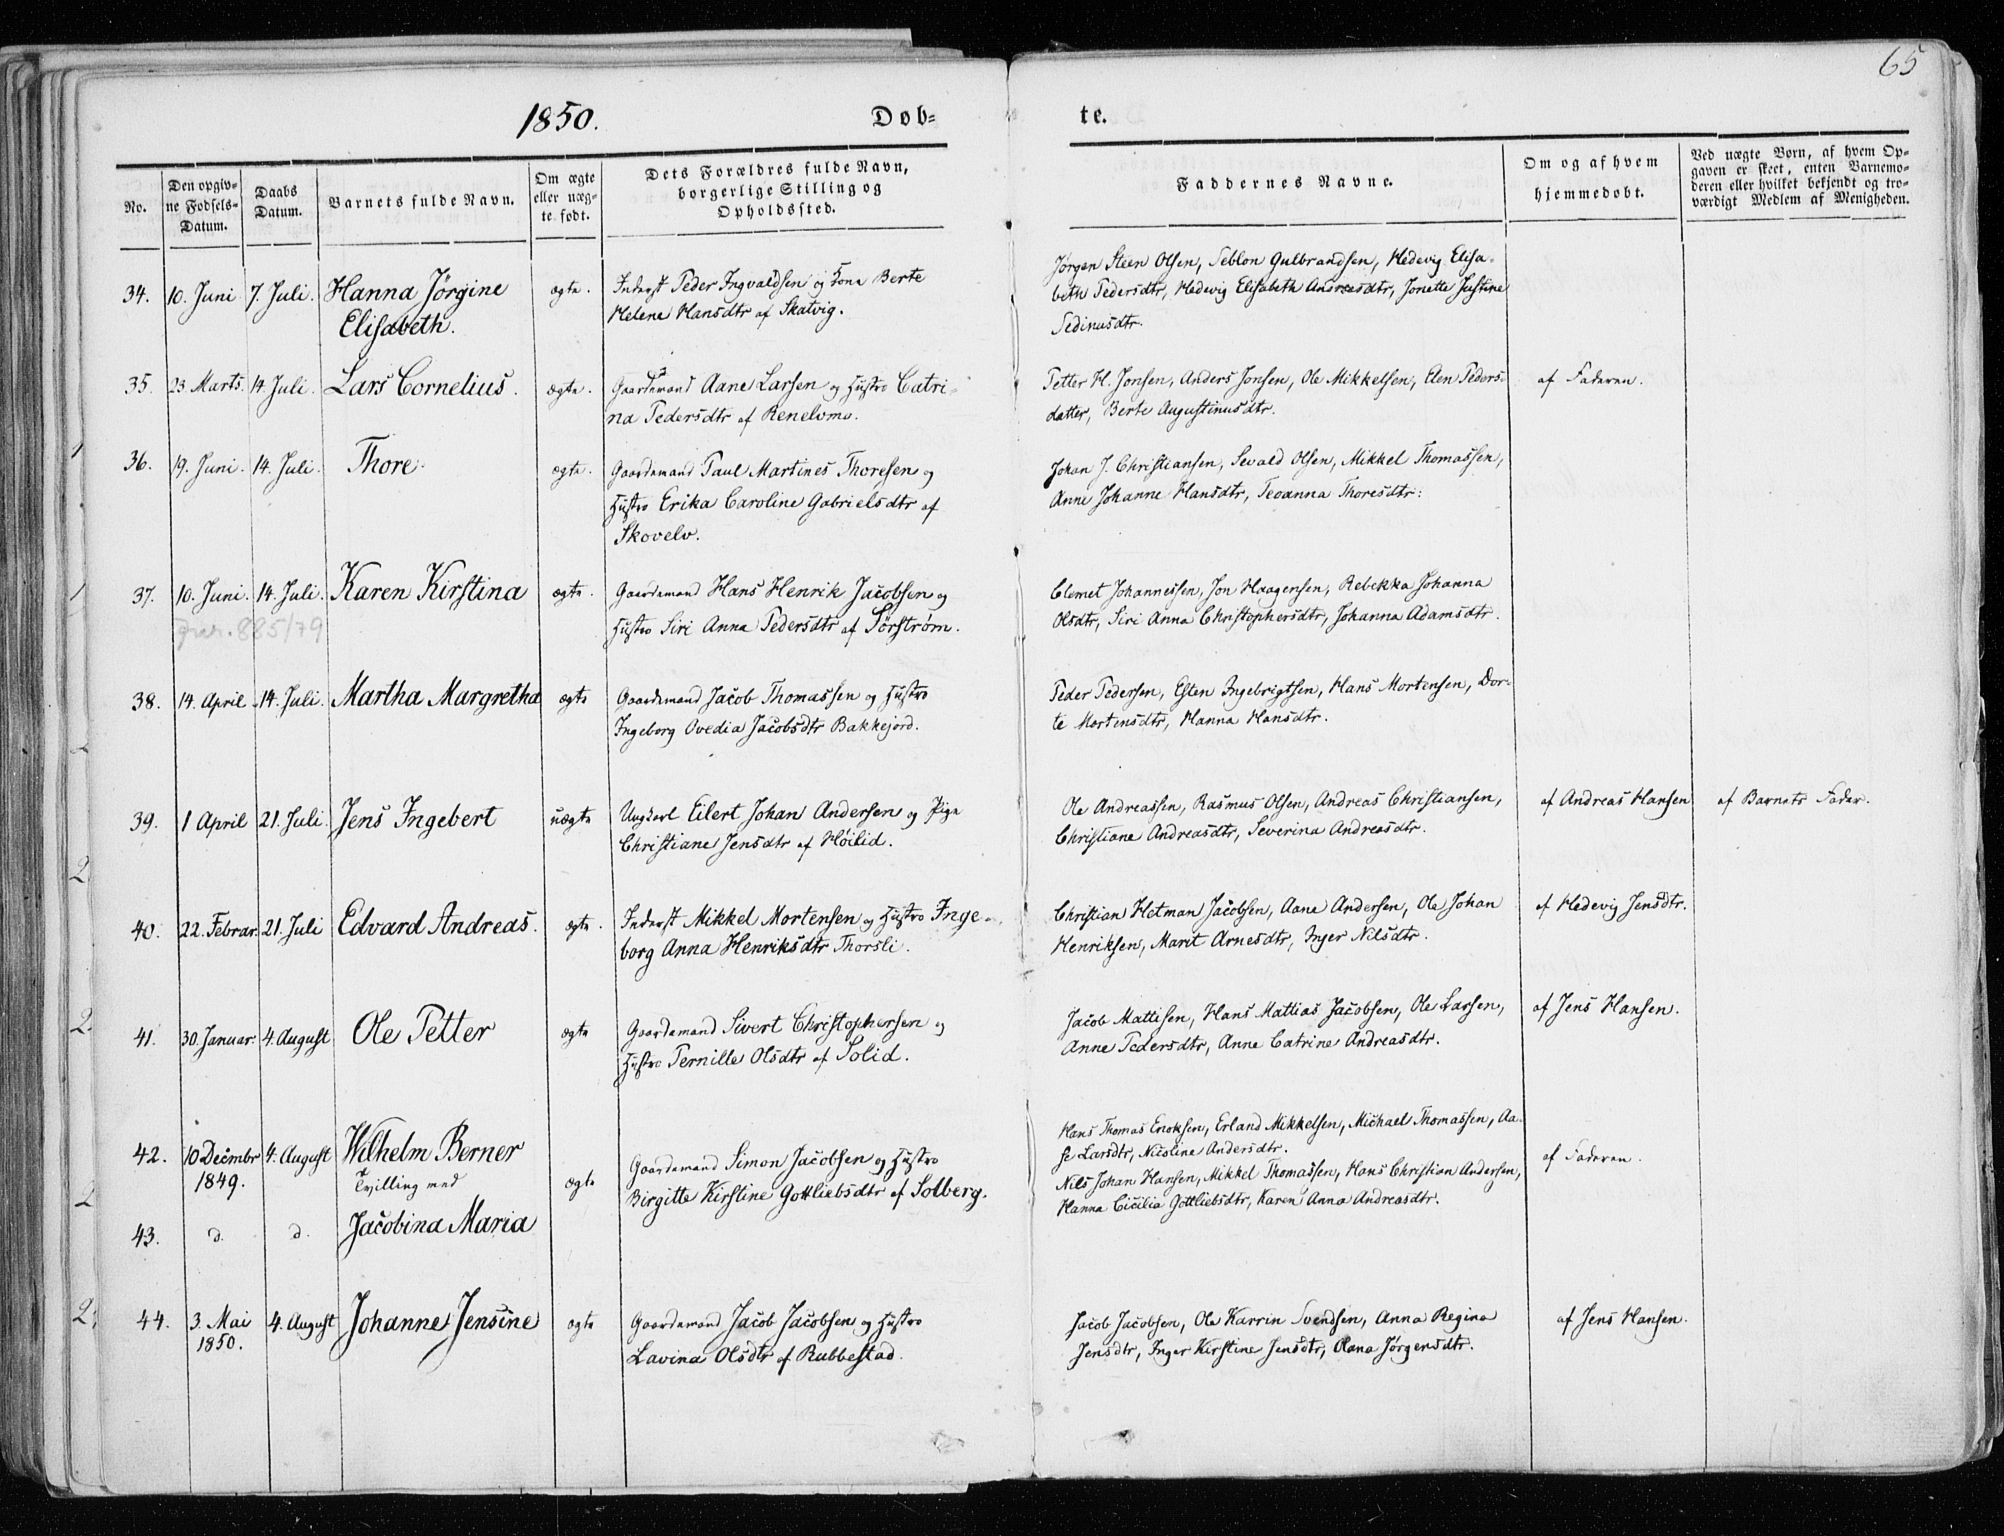 65
1850. Døb= te.
No.
Den opgiv=
ne Fødsels=
Datum.
Daabs
Datum.
Barnets fulde Navn.
Om ægte
eller uæg=
te født.
Dets Forældres fulde Navn,
borgerlige Stilling og
Opholdssted.
Faddernes Navne.
Om og af hvem
hjemmedøbt.
Ved uægte Børn, af hvem Op=
gaven er skeet, enten Barnemo=
deren eller hvilket bekjendt og tro=
værdigt Medlem af Menigheden.
34. 10. Juni 7. Juli. Hanna Jörgine
Elisabeth.
ægte.
Inderst Peder Ingvaldsen og Kone Berte
Helene Hansdtr af Skatvig.
Jørgen Steen Olsen, Seblon Gulbrandsen, Hedevig Elisa-
beth Pedersdtr, Hedevig Elisabeth Andreasdtr, Jonette Justine
Sedinusdtr.
35. 23 Marts. 14. Juli. Lars Cornelius. ægte.
Gaardmand Aane Larsen og Hustro Catri-
na Pedersdtr af Renelvmo.
Petter H. Jonsen, Anders Jonsen, Ole Mikkelsen, Elen Peders-
datter, Berte Augustinusdtr.
af Faderen.
36. 19. Juni. 14. Juli. Thore. ægte.
Gaardmand Paul Martines Thoresen og
Hustro Erika Caroline Gabrielsdtr af
Skovelv.
Johan J. Christiansen, Sevald Olsen, Mikkel Thomassen,
Anne Johanne Hansdtr, Teoanna Thoresdtr:
37. 10. Juni. 14. Juli. Karen Kirstina ægte.
885/79
Gaardmand Hans Henrik Jacobsen og
Hustro Siri Anna Pedersdtr af Sørstrøm.
Clemet Johannessen, Jon Haagensen, Rebekka Johanna
Olsdtr, Siri Anna Christophersdtr, Johanna Adamsdtr.
38. 14. April 14. Juli. Martha Margretha ægte
Gaardmand Jacob Thomassen og Hustro
Ingeborg Ovedia Jacobsdtr Bakkejord.
Peder Pedersen, Esten Ingebrigtsen, Hans Mortensen, Dor-
te Mortensdtr, Hanna Hansdtr.
39. 1 April 21. Juli Jens Ingebert uægte
Ungkarl Eilert Johan Andersen og Pige
Christiane Jensdtr af Höilid.
Ole Andreassen, Rasmus Olsen, Andreas Christiansen,
Christiane Andreasdtr, Severina Andreasdtr.
af Andreas Hansen
af Barnets Fader.
40. 22. Februar. 21. Juli Edvard Andreas. ægte.
Inderst Mikkel Mortensen og Hustro Inge-
borg Anna Henriksdtr Thorsli.
Christian Hetman Jacobsen, Aane Andersen, Ole Johan
Henriksen, Marit Arnesdtr, Inger Nilsdtr.
af Hedevig Jensdtr.
41. 30. Januar. 4. August Ole Petter ægte
Gaardmand Sivert Christophersen og
Hustro Pernille Olsdtr af Solid.
Jacob Mattisen, Hans Mattias Jacobsen, Ole Larsen,
Anne Pedersdtr, Anne Catrine Andreasdtr.
af Jens Hansen.
42. 10 Decmbr
1849.
4. August Wilhelm Berner
Tvilling med
ægte
Gaardmand Simon Jacobsen og Hustro
Birgitte Kirstine Gottliebsdtr af Solberg.
Hans Thomas Enoksen, Erland Mikkelsen, Michael Thomassen, Aa-
se Larsdtr, Nicoline Andersdtr.
Nils Johan Hansen, Mikkel Thomassen, Hans Christian Andersen,
Hanna Cicilia Gottliebsdtr, Karen Anna Andreasdtr.
af Faderen.
43. d. d. Jacobina Maria
44. 3. Mai
1850.
4. August Johanne Jensine ægte
Gaardmand Jacob Jacobsen og Hustro
Lavina Olsdtr af Rubbestad.
Jacob Jacobsen, Ole Karrin Svendsen, Anna Regina
Jensdtr, Inger Kirstine Jensdtr, Olana Jørgensdtr.
af Jens Hansen.